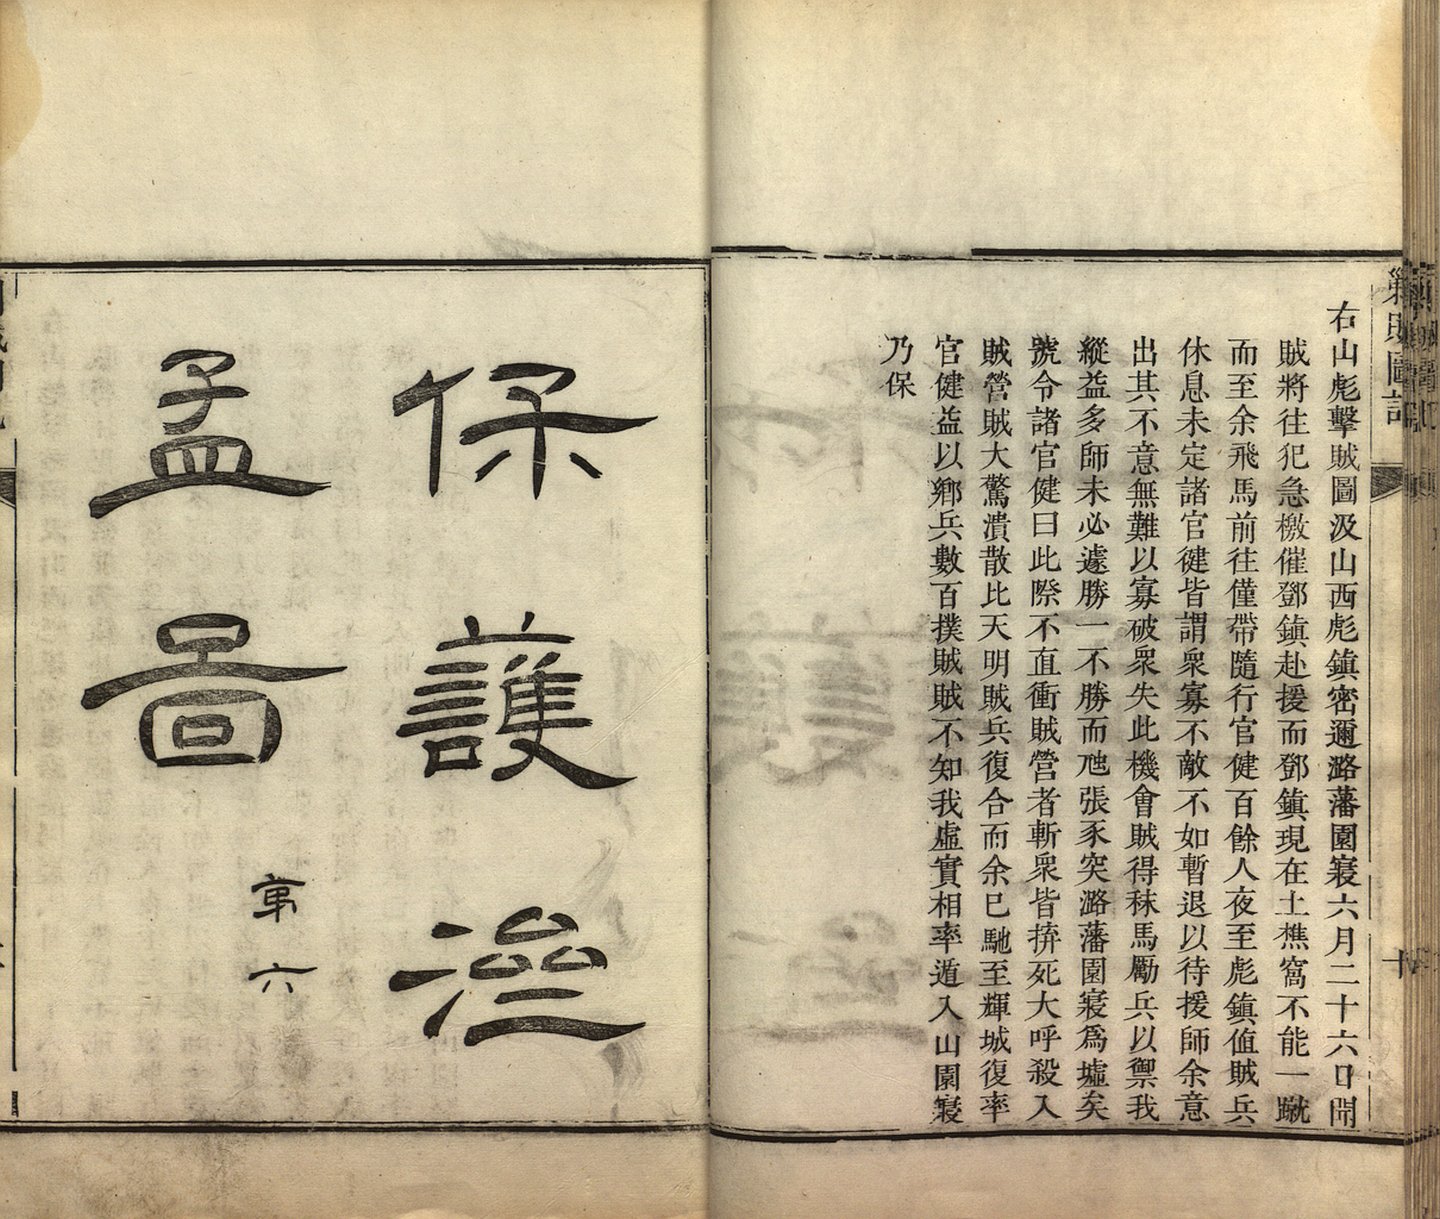 右山彪擊賊圖汲山西彪鎮密邇潞藩園寝六月二十六日聞
賊將往犯急檄催鄧鎮赴援而鄧鎮現在土樵窩不能一蹴
而至余飛馬前往僅帶隨行官健百餘人夜至彪鎮値賊兵
休息未定諸官健皆謂衆寡不敵不如暫退以待援師余意
出其不意無難以寡破衆失此機會賊得秣馬勵兵以禦我
縱益多師未必遽勝一不勝而虺張豕突潞藩園寝爲墟矣
號令諸官健曰此際不直衝賊營者斬衆皆拚死大呼殺入
賊營賊大驚潰散比天明賊兵復合而余已馳至輝城復率
官健益以鄉兵數百撲賊賊不知我虛實相率遁入山園寝
乃保
保護滋
孟圖
第六